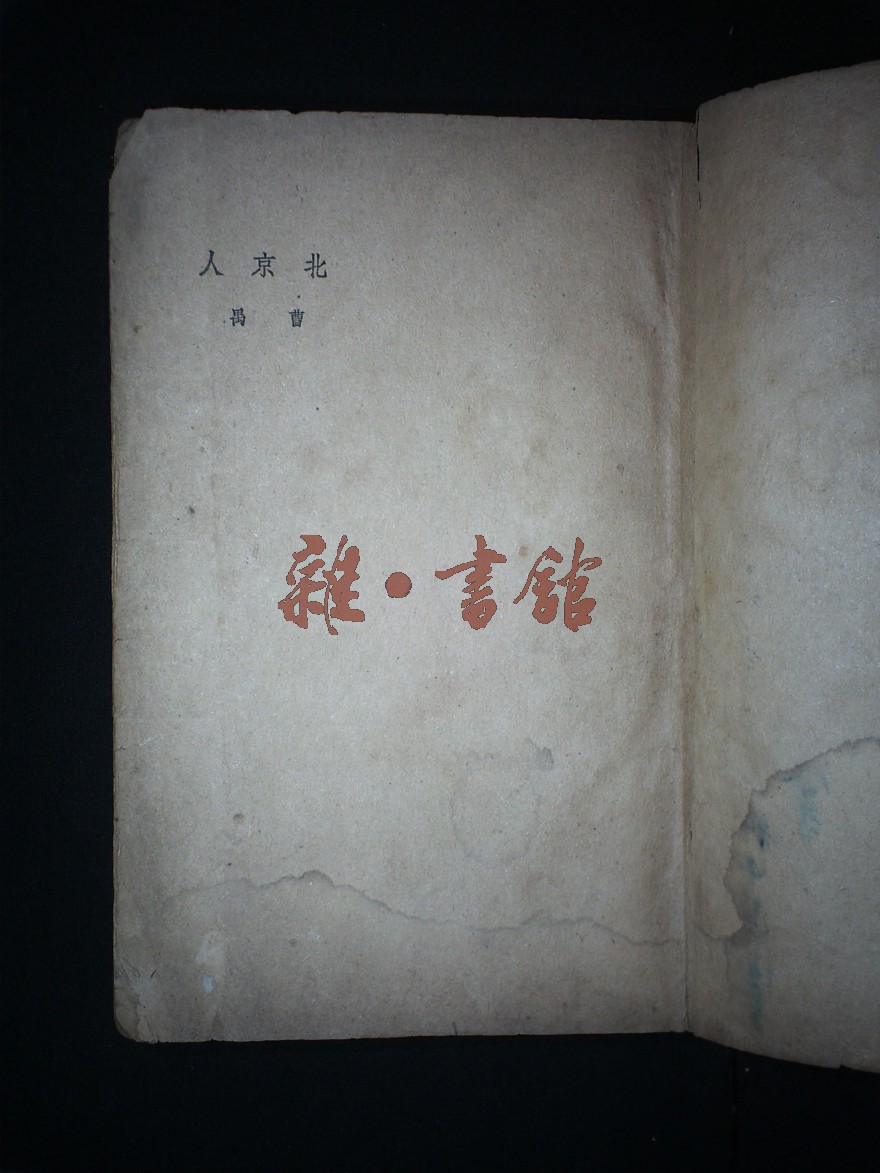 北京人
曹禺
雜·書館